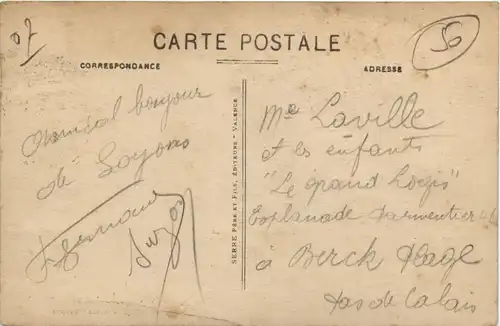 07
50
CARTE POSTALE
CORRESPONDANCE
ADRESSE
Amical bonjour
de Soyons
Fernand
Suzon
SERRE PÈRE ET FILS, ÉDITEURS - VALENCE
Me Laville
et les enfants
"Le grand Logis"
Esplanade Parmentier
à Berck Plage
Pas de Calais